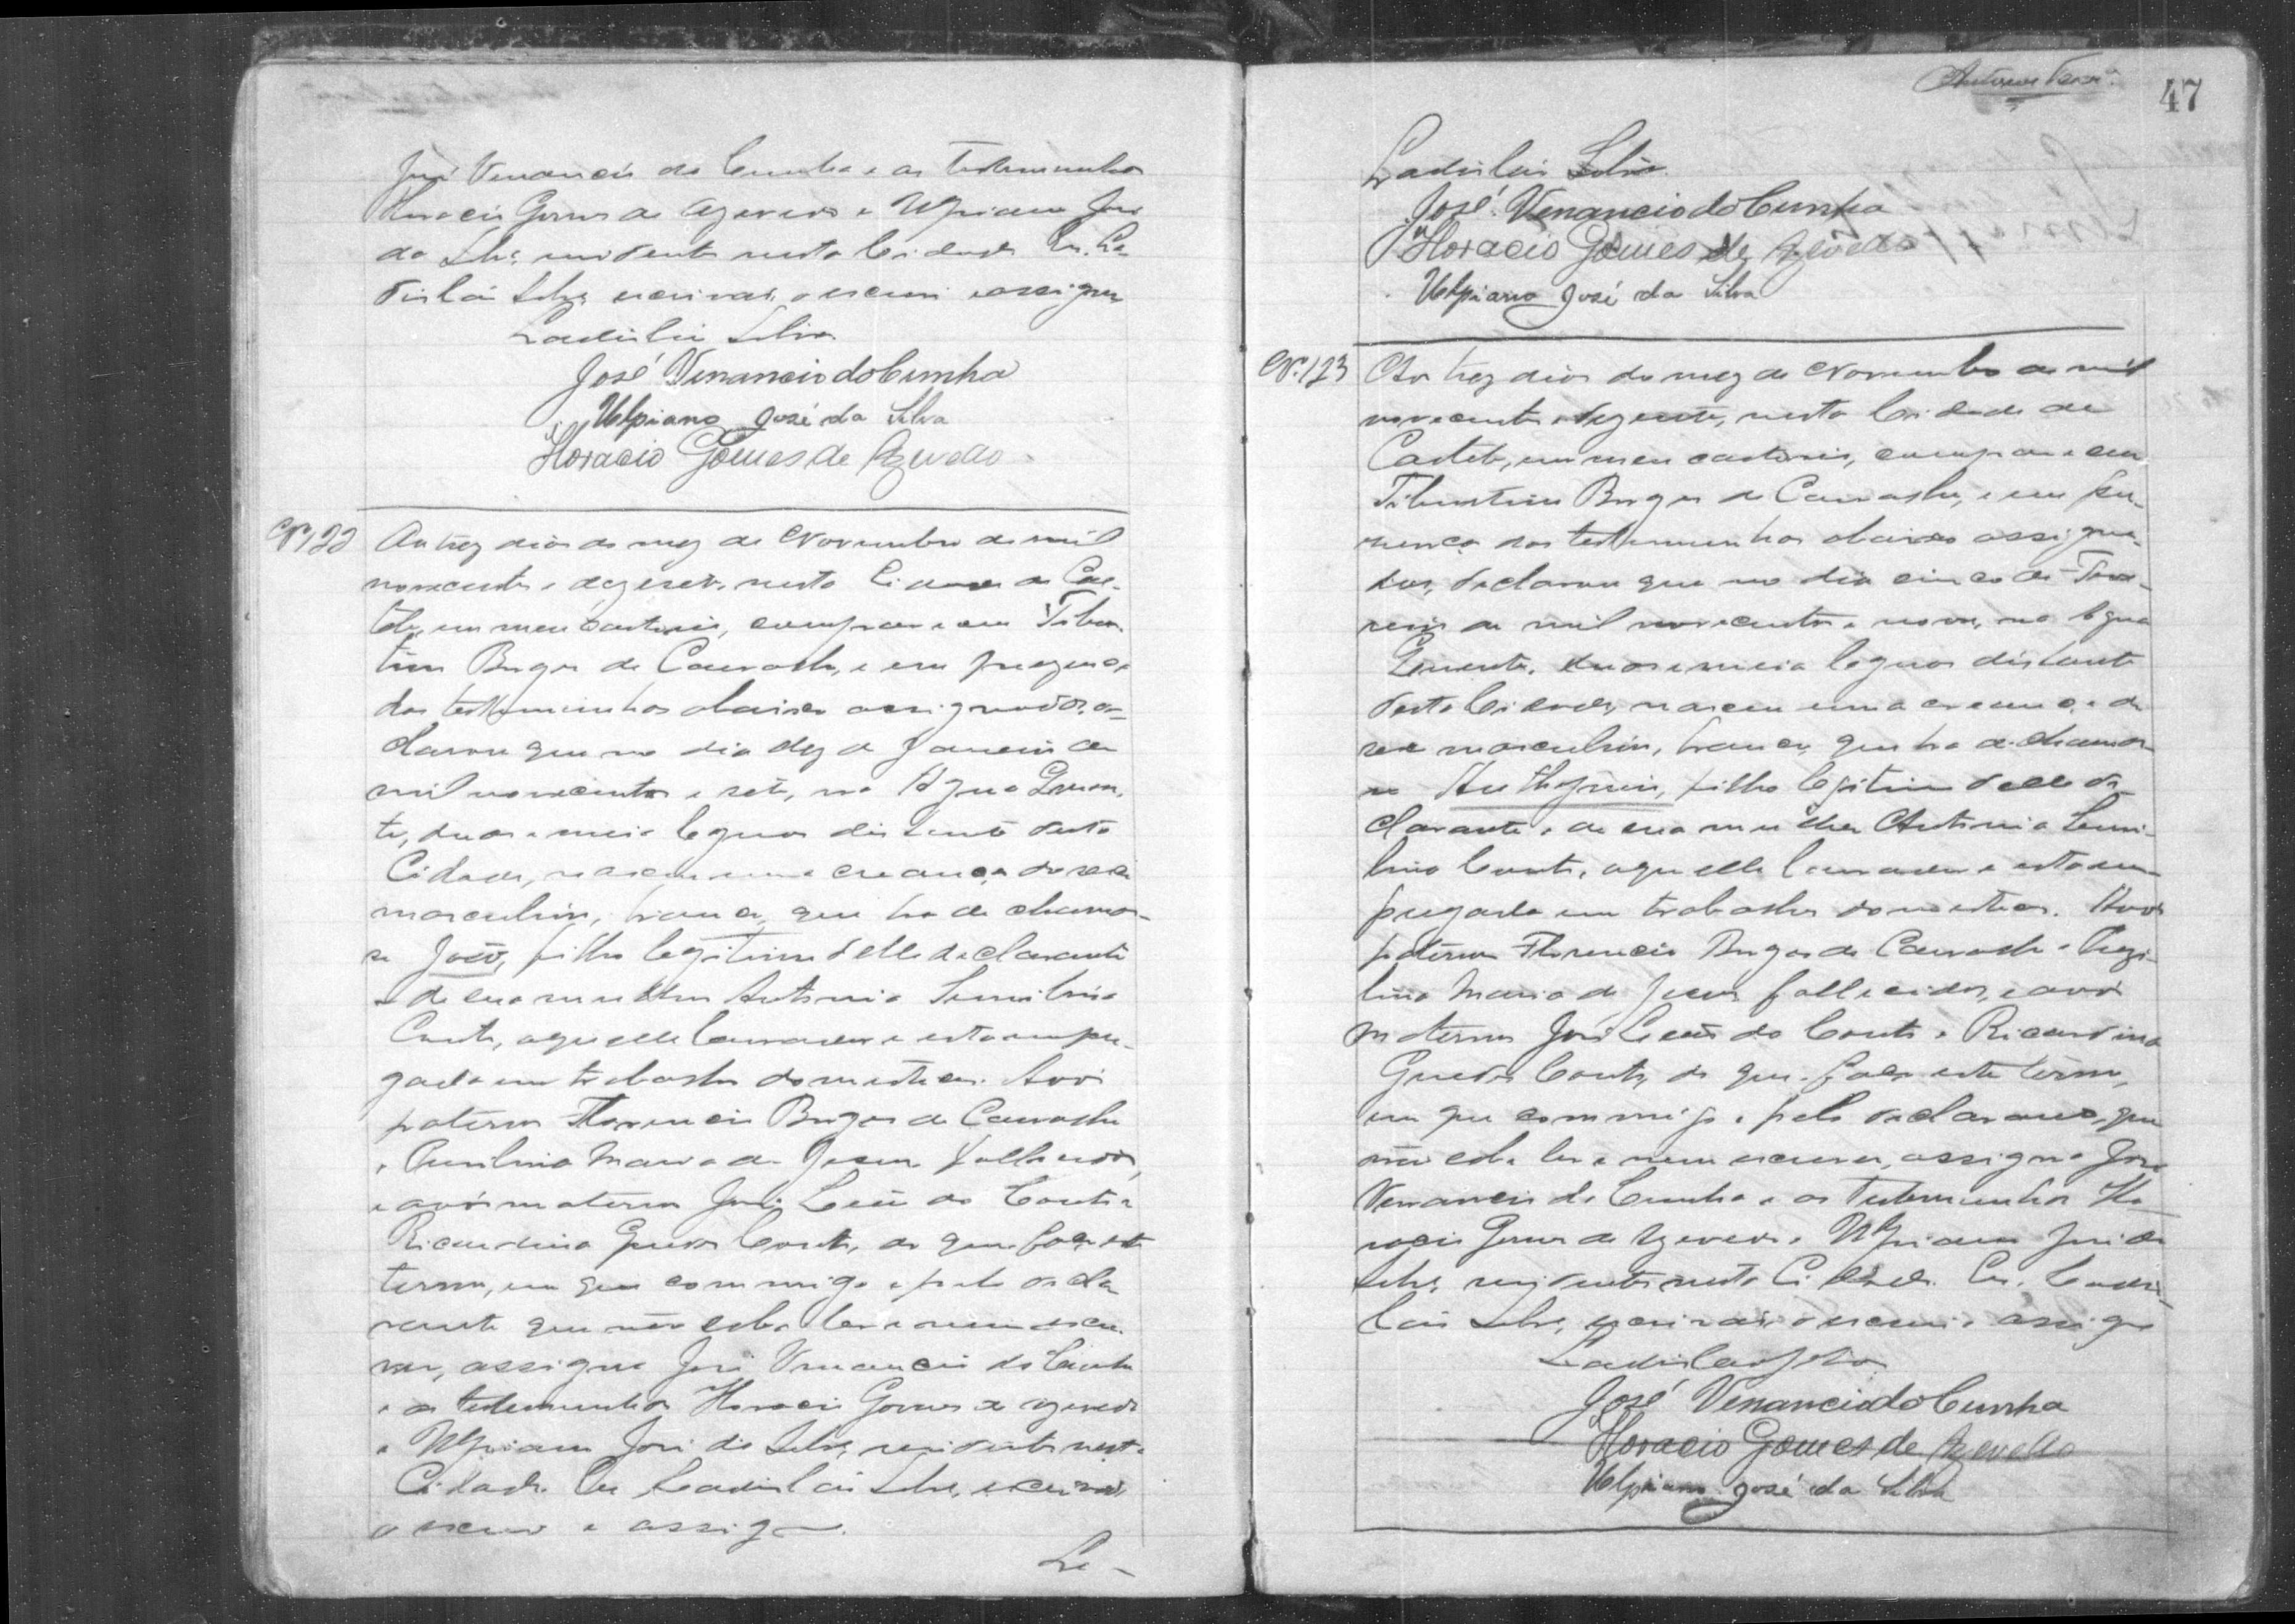 José Venancio da Cunha e as testemunhas
Horacio Gomes de Azevedo e Ulpiano José
da Silva, residentes nesta Cidade. Eu, La-
disláu Silva, escrivão, o escrevi e assigno
Ladisláu Silva
José Venancio da Cunha
Ulpiano José da Silva
Horacio Gomes de Azevedo
Nº 122 Aos trez dias do mez de Novembro de mil
novecentos e dezesete, nesta Cidade de Cae-
teté, em meu Cartorio, compareceu Tibur-
tino Borges de Carvalho, e em presença
das testemunhas abaixo assignadas, de-
clarou que no dia dez de Janeiro de
mil novecentos e sete, na Agua Quen-
te, duas e meia leguas distante desta
Cidade, nasceu uma creança do sexo
masculino, branca, que ha de chamar-
se João, filho legitimo delle declarante
e de sua mulher Antonia
Couto, aquelle lavrador e esta empre-
gada em trabalhos domesticos. Avós
paternos Florencio Borges de Carvalho
e Maria de Jesus, fallecidos,
e avós maternos José Leão do Couto e
Ricardina Guedes Couto, do que faço este
termo, em que commigo e pelo decla-
rante que não sabe ler e nem escre-
ver, assigna José Venancio da Cunha
e as testemunhas Horacio Gomes de Azevedo
e Ulpiano José da Silva, residentes nesta
Cidade. Eu Ladisláu Silva, escrivão,
o escrevi e assigno.
La-
47
Ladisláu Silva
José Venancio da Cunha
Horacio Gomes de Azevedo
Ulpiano José da Silva
Nº 123 Aos trez dias do mez de Novembro de mil
novecentos e dezesete, nesta Cidade de
Caeteté, em meu cartorio, compareceu
Tiburtino Borges de Carvalho, e em pre-
sença das testemunhas abaixo assigna-
das, declarou que no dia cinco de Feve-
reiro de mil novecentos e nove, na Agua
Quente, duas e meia leguas distante
desta Cidade, nasceu uma creança do
sexo masculino, branca, que ha de chamar-
se filho legitimo delle de-
clarante e de sua mulher Antonia
Couto, aquelle lavrador e esta em-
pregada em trabalhos domesticos. Avós
paternos Florencio Borges de Carvalho e
Maria de Jesus, fallecidos, e avós
maternos José Leão do Couto e Ricardina
Guedes Couto, do que faço este termo,
em que commigo e pelo declarante, que
não sabe ler e nem escrever, assigna José
Venancio da Cunha e as testemunhas Ho-
racio Gomes de Azevedo e Ulpiano José da
Silva, residentes nesta Cidade. Eu, Ladis-
láu Silva, escrivão, o escrevi e assigno
Ladisláu Silva
José Venancio da Cunha
Horacio Gomes de Azevedo
Ulpiano José da Silva